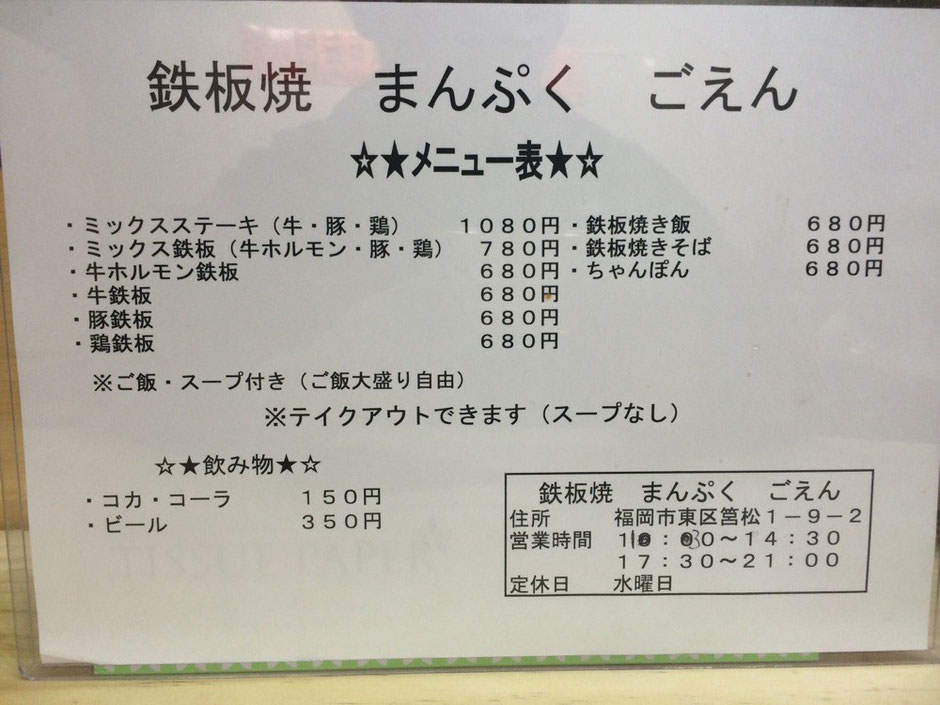 鉄板焼　まんぷく　ごえん
☆★メニュー表★☆
・ミックスステーキ（牛・豚・鶏）　１０８０円
・ミックス鉄板（牛ホルモン・豚・鶏）　７８０円
・牛ホルモン鉄板　６８０円
・牛鉄板　６８０円
・豚鉄板　６８０円
・鶏鉄板　６８０円
・鉄板焼き飯　６８０円
・鉄板焼きそば　６８０円
・ちゃんぽん　６８０円
※ご飯・スープ付き（ご飯大盛り自由）
※テイクアウトできます（スープなし）
☆★飲み物★☆
・コカ・コーラ　１５０円
・ビール　３５０円
鉄板焼　まんぷく　ごえん
住所　福岡市東区筥松１－９－２
営業時間　～１４：３０
１７：３０～２１：００
定休日　水曜日